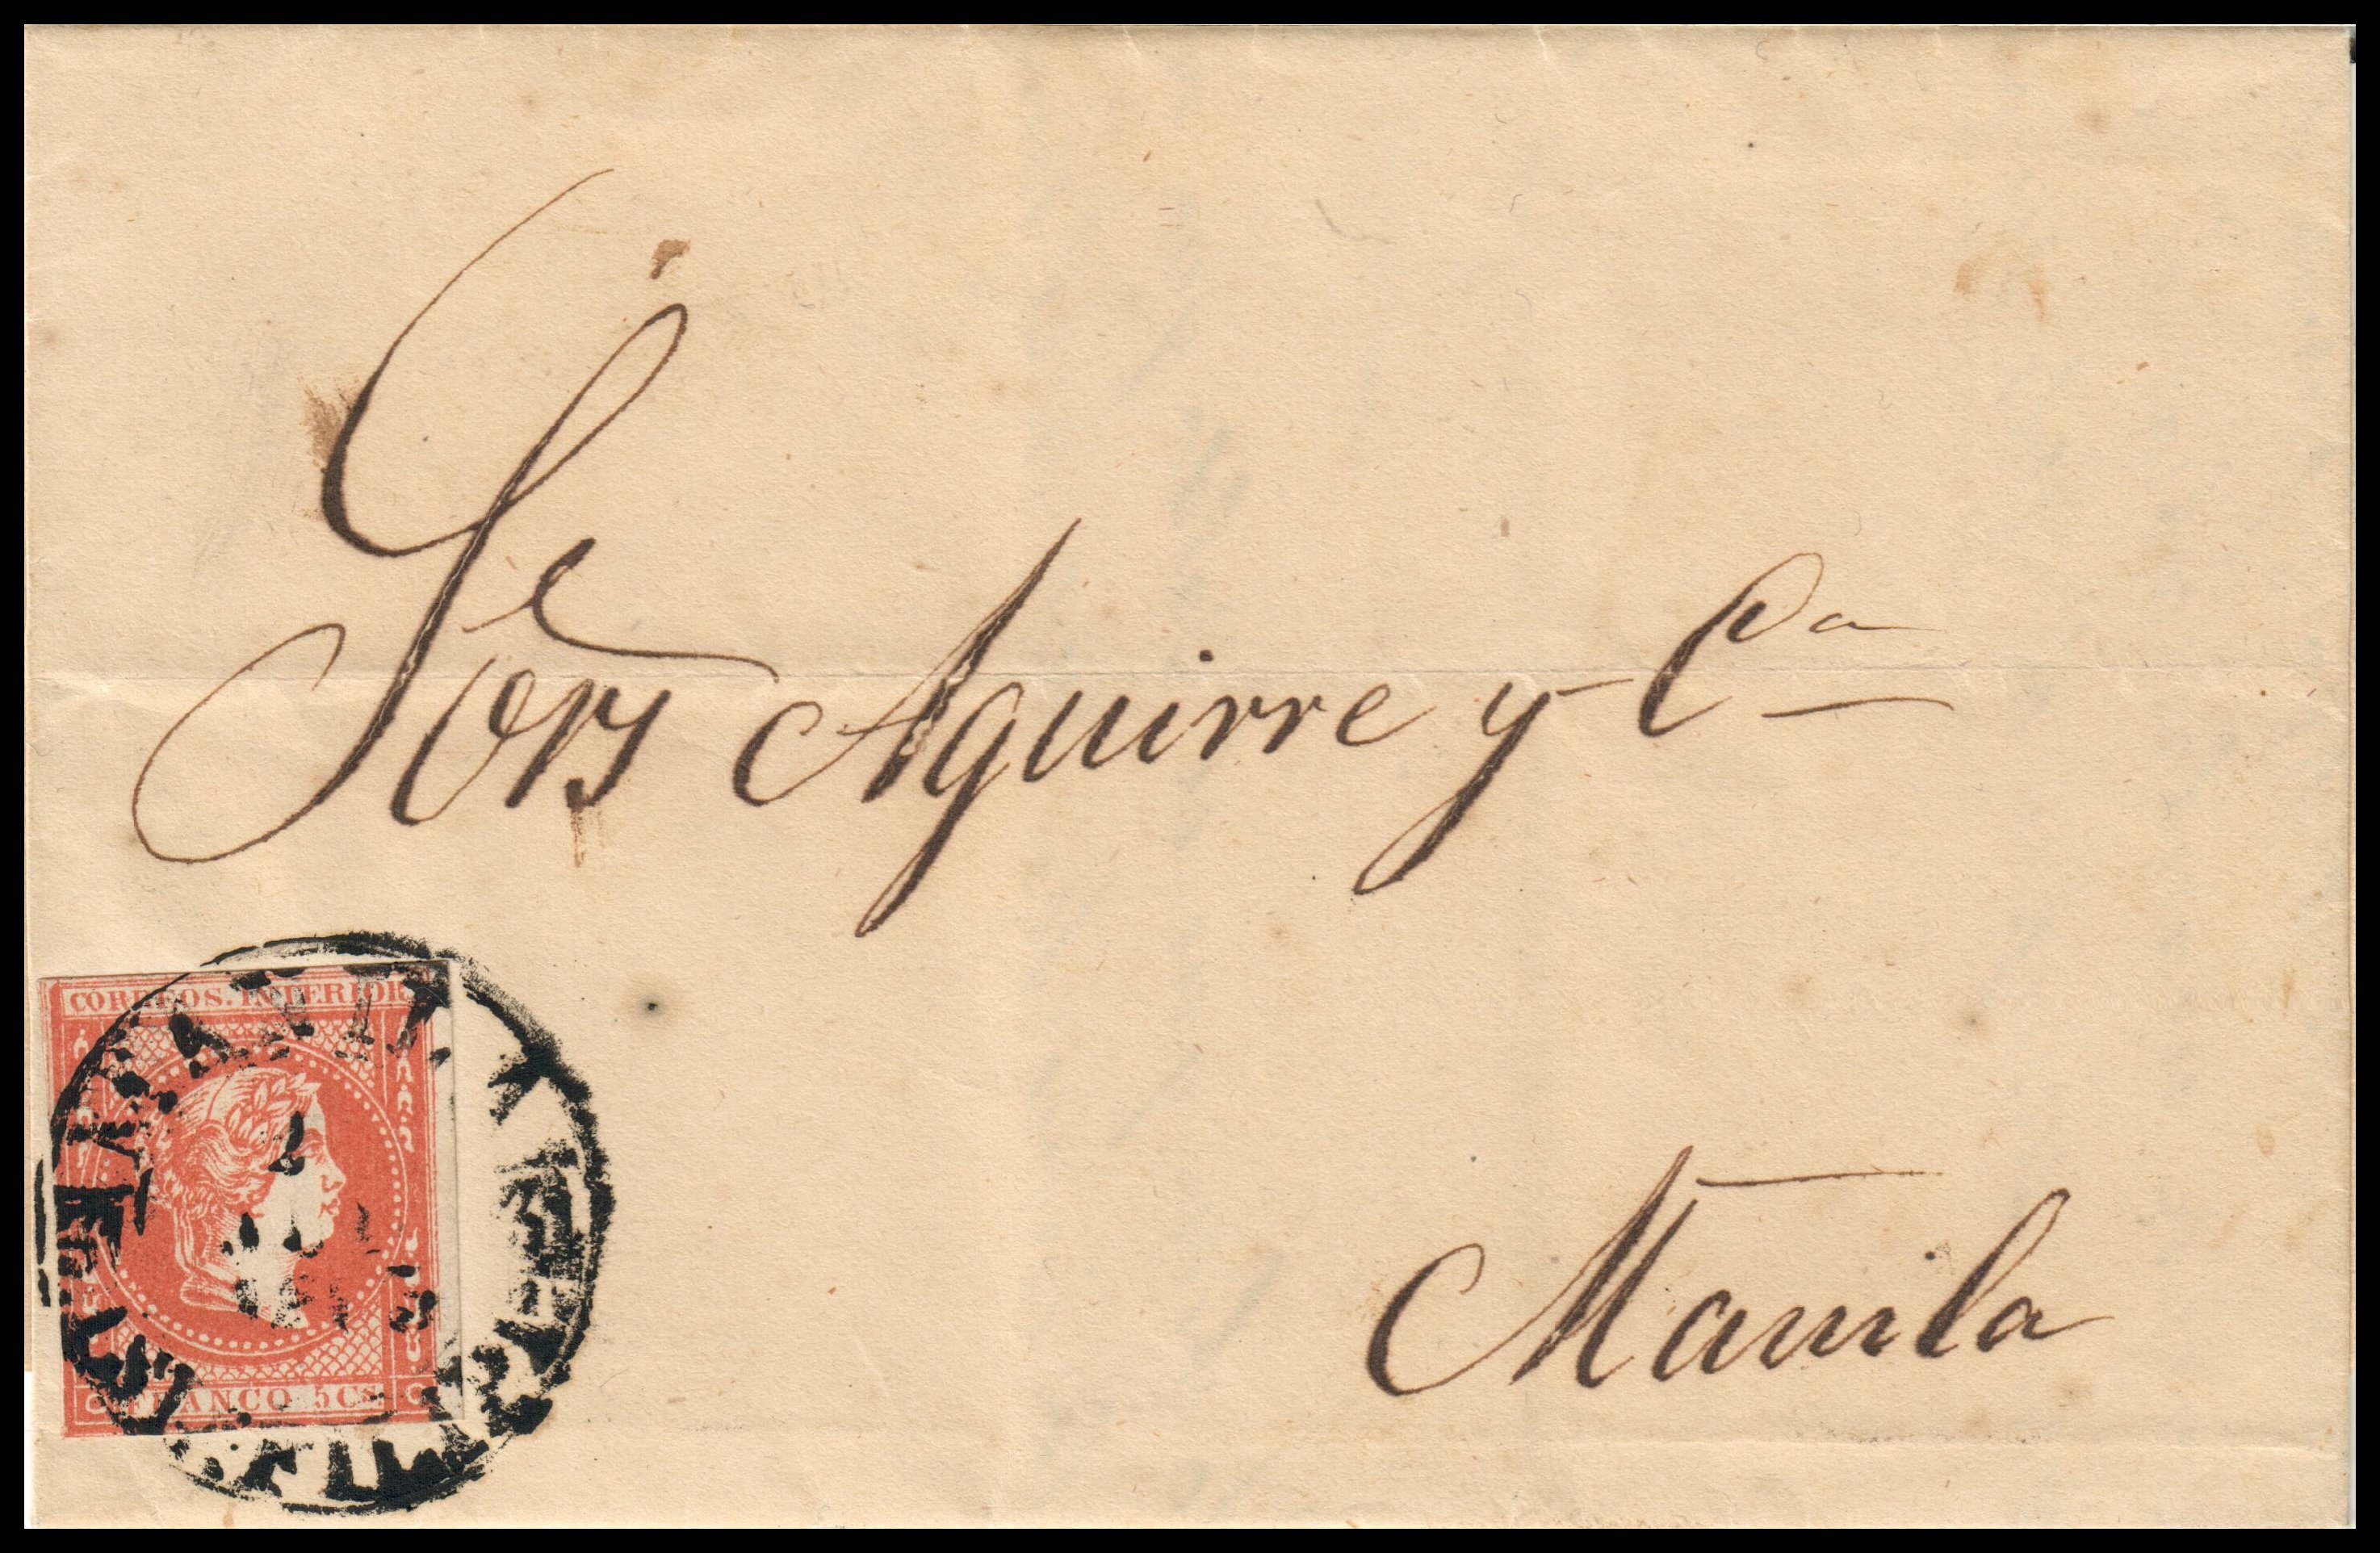 Sres Aguirre y Ca
Manila
CORREOS. INTERIOR
FRANCO. 5 CS.